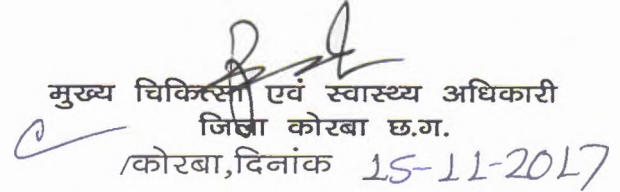 मुख्य चिकित्सा एवं स्वास्थ्य अधिकारी
जिला कोरबा छ.ग.
/कोरबा,दिनांक 15-11-2017